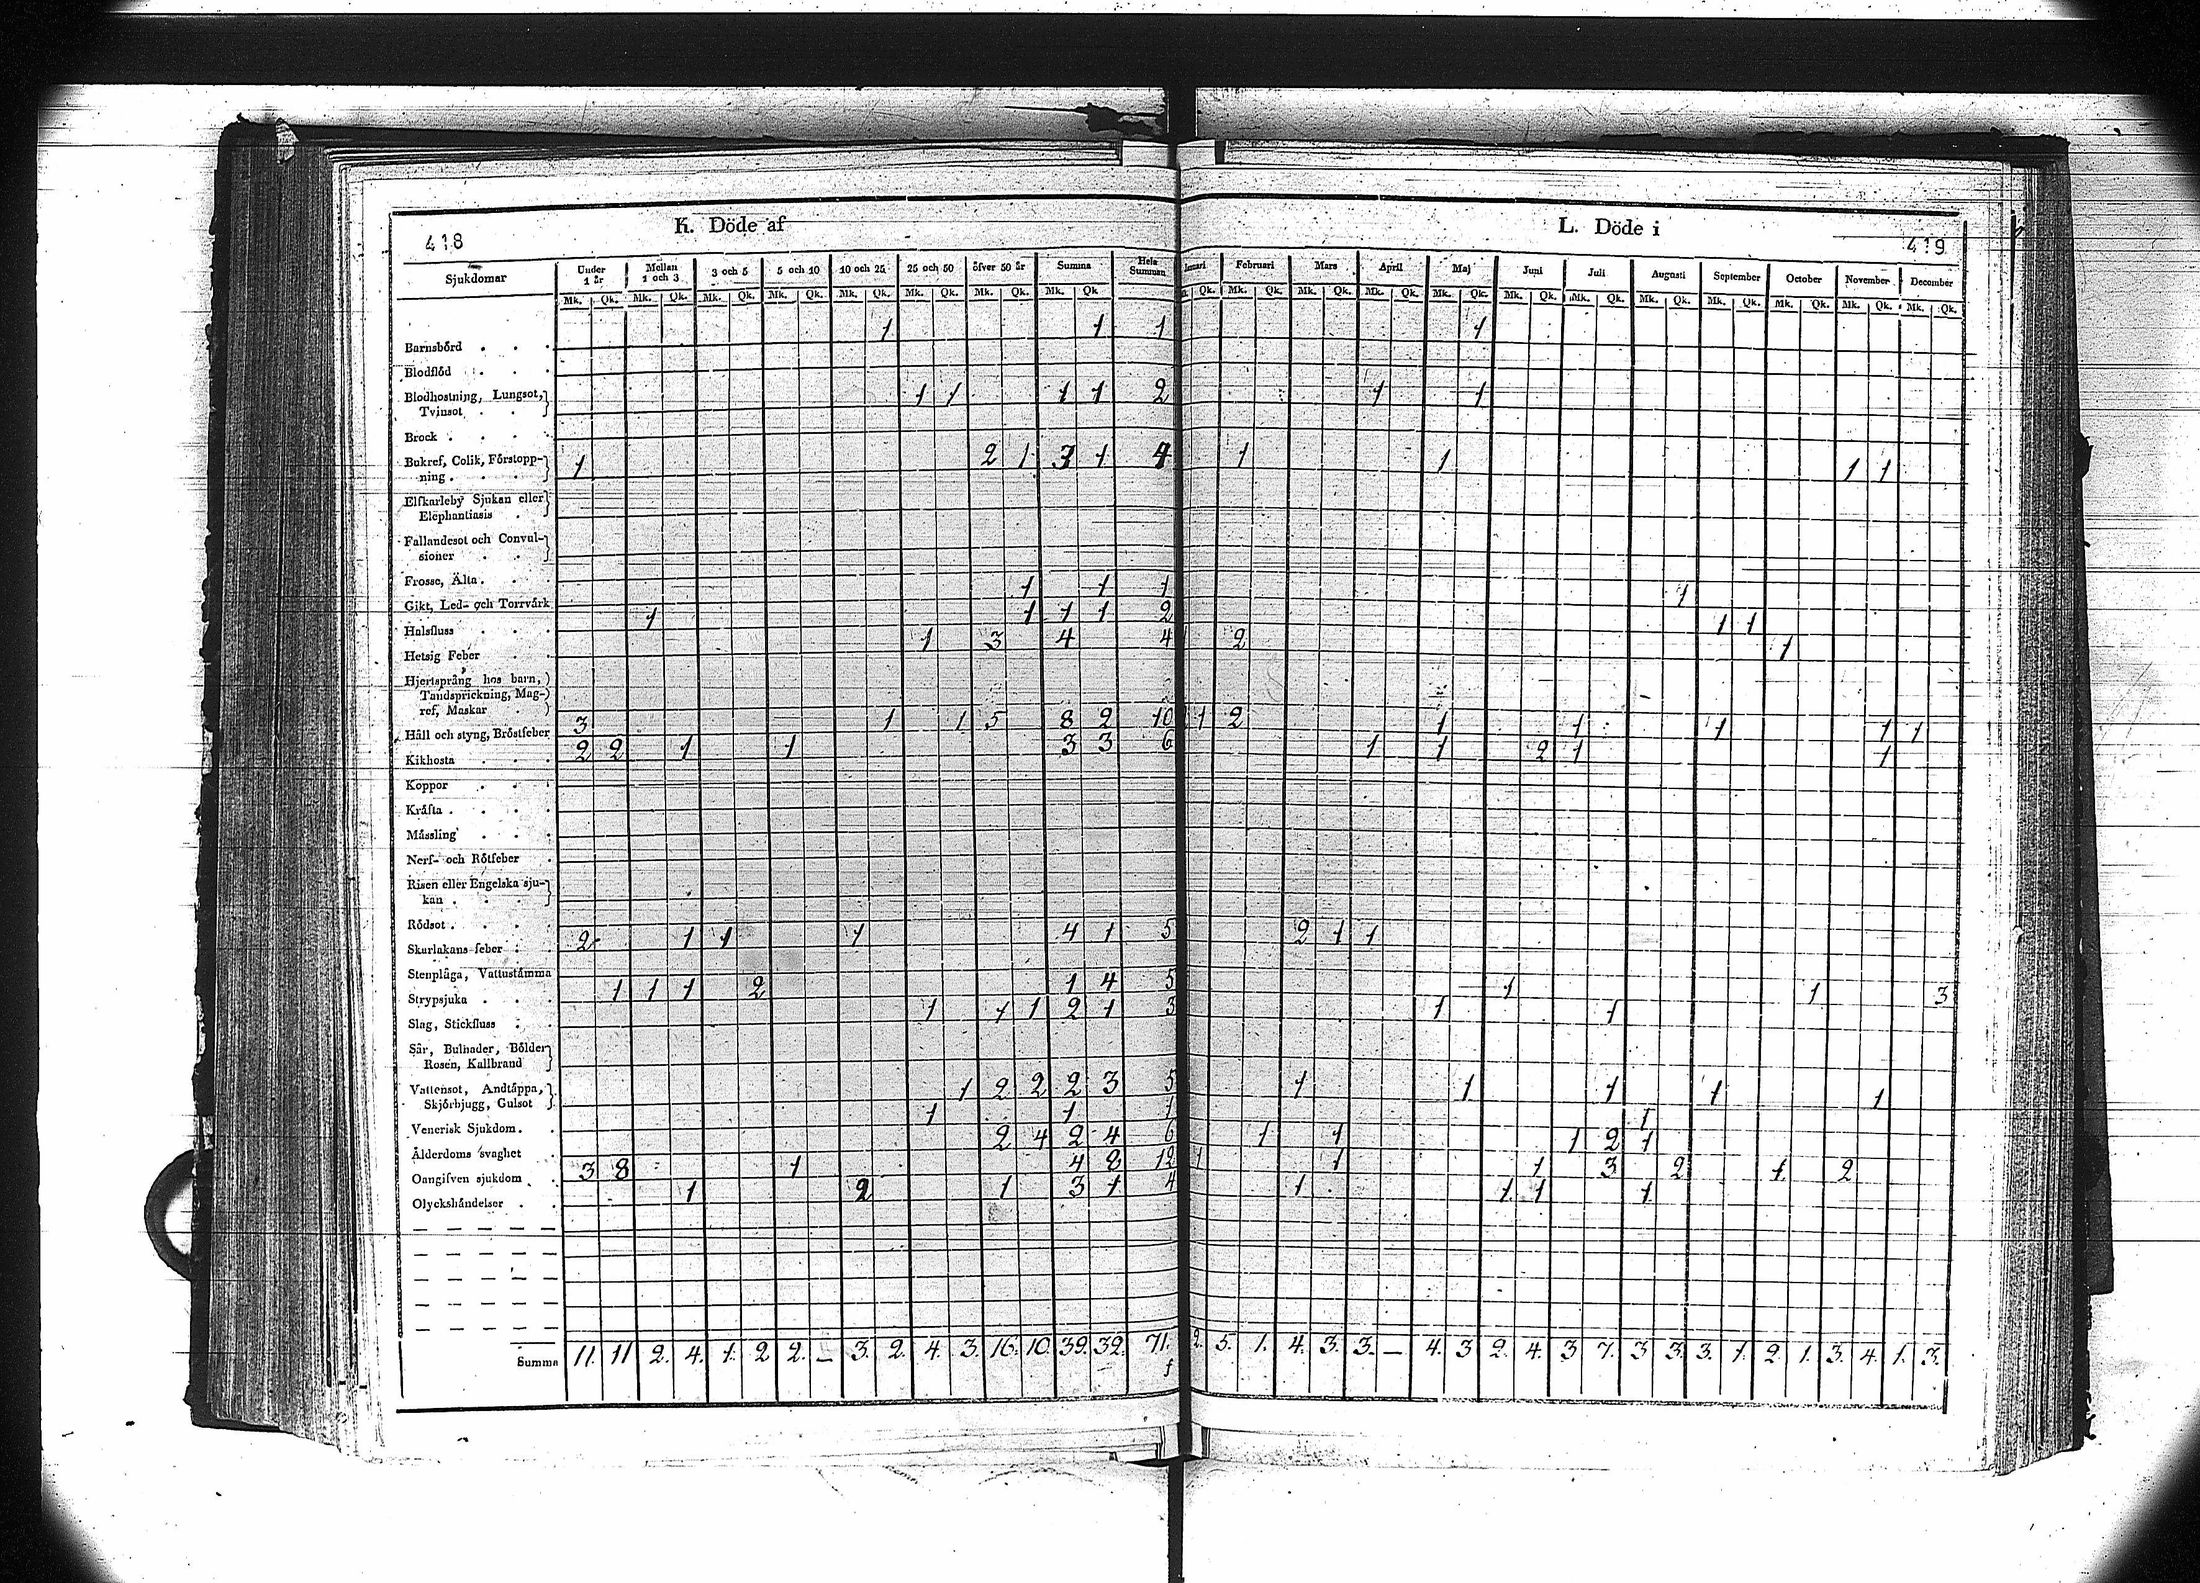 418
K. Döde af
L. Döde i
419
Sjukdomar Under 1 år Mellan 1 och 3 3 och 5 5 och 10 10 och 25 25 och 50 öfver 50 år Summa Hela Summan Februari Mars April Maj Juni Juli Augusti September October November December
Mk. Qk. Mk. Qk. Mk. Qk. Mk. Qk. Mk. Qk. Mk. Qk. Mk. Qk. Mk. Qk Qk. Mk. Qk. Mk. Qk. Mk. Qk. Mk. Qk. Mk. Qk. Mk. Qk. Mk. Qk. Mk. Qk. Mk. Qk. Mk. Qk. Mk. Qk.
Barnsbörd . . . 1 1 1 1
Blodflöd . . .
Blodhostning, Lungsot,
Tvinsot . . 1 1 1 1 2 1 1
Brock . . . .
Bukref, Colik, Förstopp-
ning . . . 1 2 1 3 1 4 1 1 1 1
Elfkarleby Sjukan eller
Elephantiasis .
Fallandesot och Convul-
sioner . .
Frosse, Älta . . .
Gikt, Led- och Torrvärk 1 1 1 1
Halsfluss . . . 1 1 1 1 2 1 1
Hetsig Feber . . 1 3 4 4 2 1
Hjertsprång hos barn,
Tandsprickning, Mag-
ref, Maskar .
Håll och styng, Bröstfeber 3 1 1 5 8 2 10 1 2 1 1 1 1 1
Kikhosta . . . 2 2 1 1 3 3 6 1 1 2 1 1
Koppor . . .
Kräfta . . . .
Mässling . . .
Nerf- och Rötfeber .
Risen eller Engelska sju-
kan . . .
Rödsot . . . .
Skarlakans-feber . . 2 1 1 1 4 1 5 2 1 1
Stenplåga, Vattustämma
Strypsjuka . . . 1 1 1 2 1 4 5 1 1 3
Slag, Stickfluss . . 1 1 1 2 1 3 1 1
Sår, Bulnader, Bölder
Rosen, Kallbrand
Vattensot, Andtäppa,
Skjörbjugg, Gulsot 1 2 2 2 3 5 1 1 1 1 1
Venerisk Sjukdom . . 1 1 1 1
Ålderdoms svaghet . 2 4 2 4 6 1 1 1 2 1
Oangifven sjukdom . 3 8 1 4 8 12 1 1 1 3 2 1. 2
Olyckshändelser . . 1 2 1 3 1 4 1 1 1 1
Summa 11. 11 2. 4. 1. 2 2. — 3. 2. 4. 3. 16. 10 39. 32. 71. 2. 5. 1. 4. 3. 3. — 4. 3 2. 4. 3 7. 3 3. 3. 1. 2. 1. 3. 4. 1. 3.